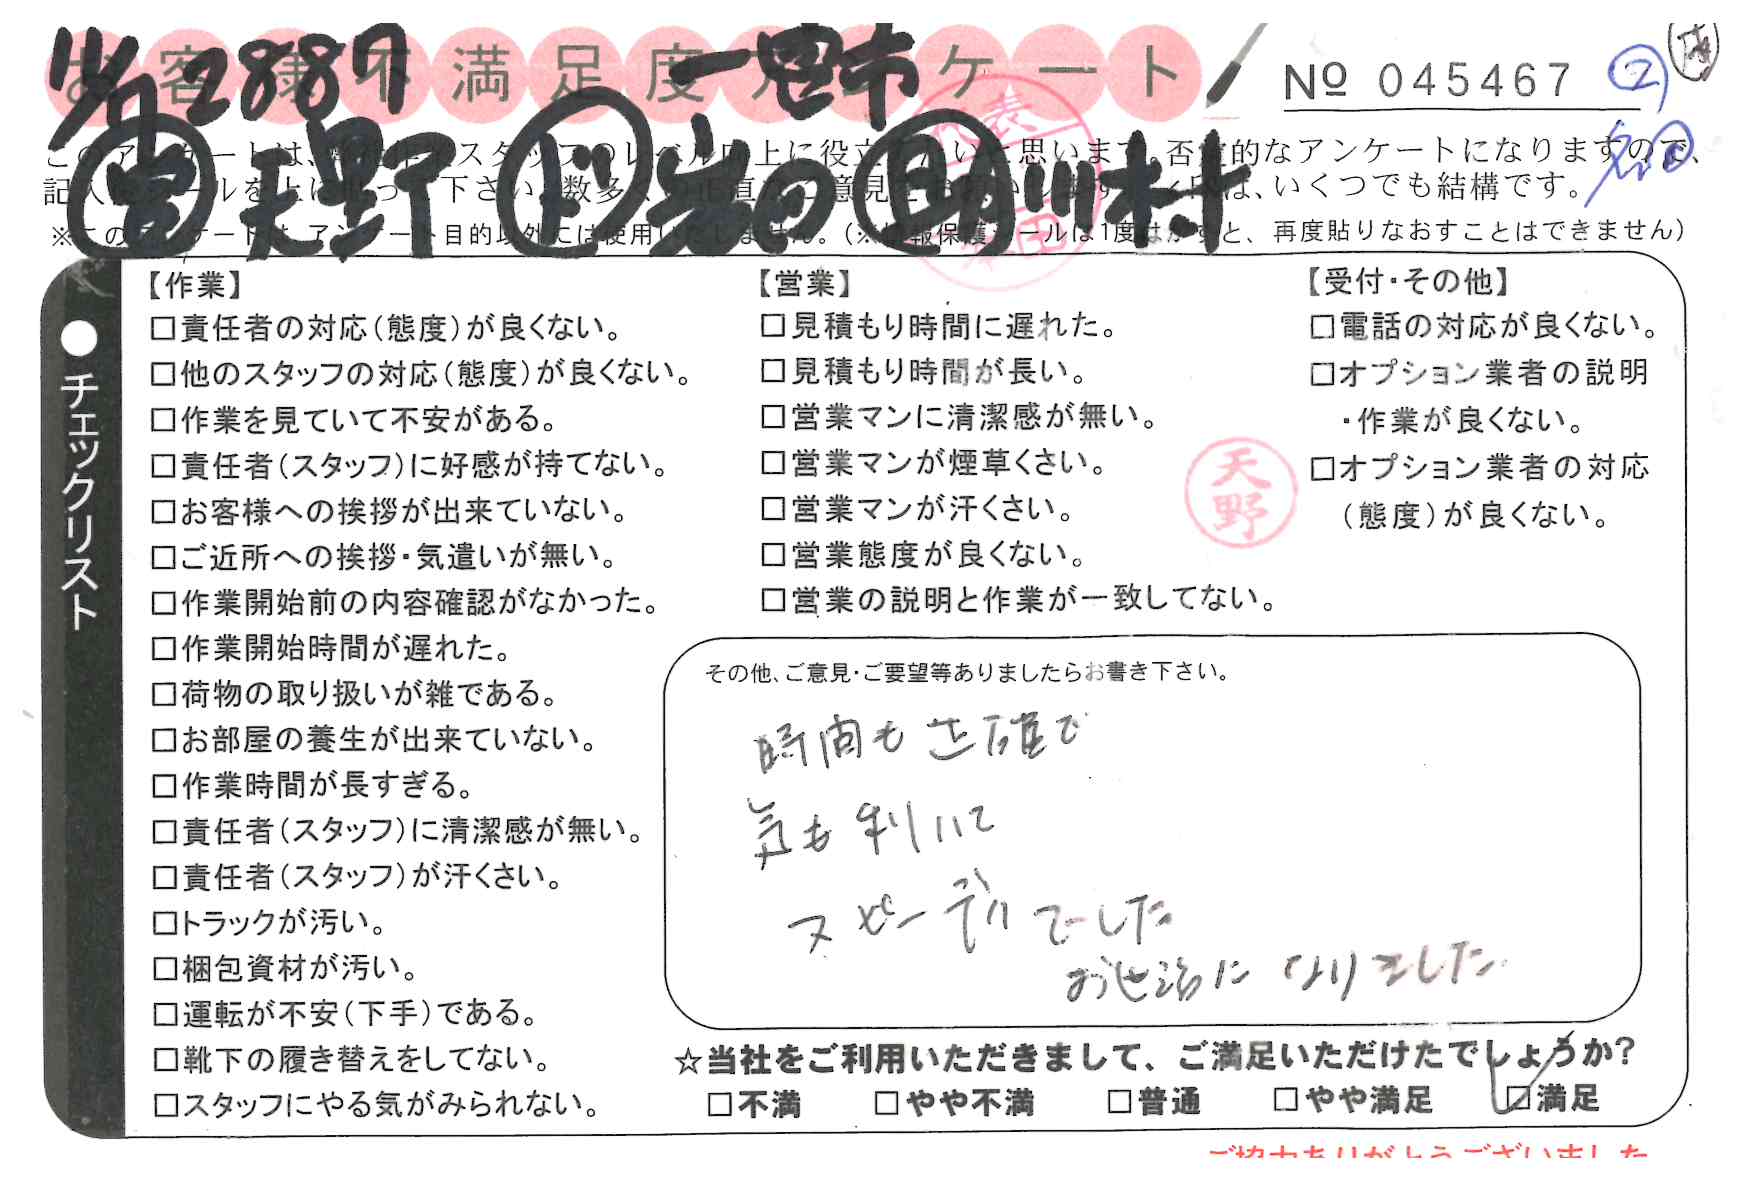 お客様不満足度アンケート
11/1 2887 一宮市
№ 045467 ②
営 天野 ド 岩田 助 川村
※このアンケートは、アンケート目的以外には使用いたしません。(※情報保護シールは1度はがすと、再度貼りなおすことはできません)
天野
●チェックリスト
【作業】
□責任者の対応(態度)が良くない。
□他のスタッフの対応(態度)が良くない。
□作業を見ていて不安がある。
□責任者(スタッフ)に好感が持てない。
□お客様への挨拶が出来ていない。
□ご近所への挨拶・気遣いが無い。
□作業開始前の内容確認がなかった。
□作業開始時間が遅れた。
□荷物の取り扱いが雑である。
□お部屋の養生が出来ていない。
□作業時間が長すぎる。
□責任者(スタッフ)に清潔感が無い。
□責任者(スタッフ)が汗くさい。
□トラックが汚い。
□梱包資材が汚い。
□運転が不安(下手)である。
□靴下の履き替えをしてない。
□スタッフにやる気がみられない。
【営業】
□見積もり時間に遅れた。
□見積もり時間が長い。
□営業マンに清潔感が無い。
□営業マンが煙草くさい。
□営業マンが汗くさい。
□営業態度が良くない。
□営業の説明と作業が一致してない。
【受付・その他】
□電話の対応が良くない。
□オプション業者の説明
・作業が良くない。
□オプション業者の対応
(態度)が良くない。
その他、ご意見・ご要望等ありましたらお書き下さい。
時間も正確で
気も利いて
スピーディでした
お世話になりました
☆当社をご利用いただきまして、ご満足いただけたでしょうか?
□不満 □やや不満 □普通 □やや満足 ☑満足
ご協力ありがとうございました